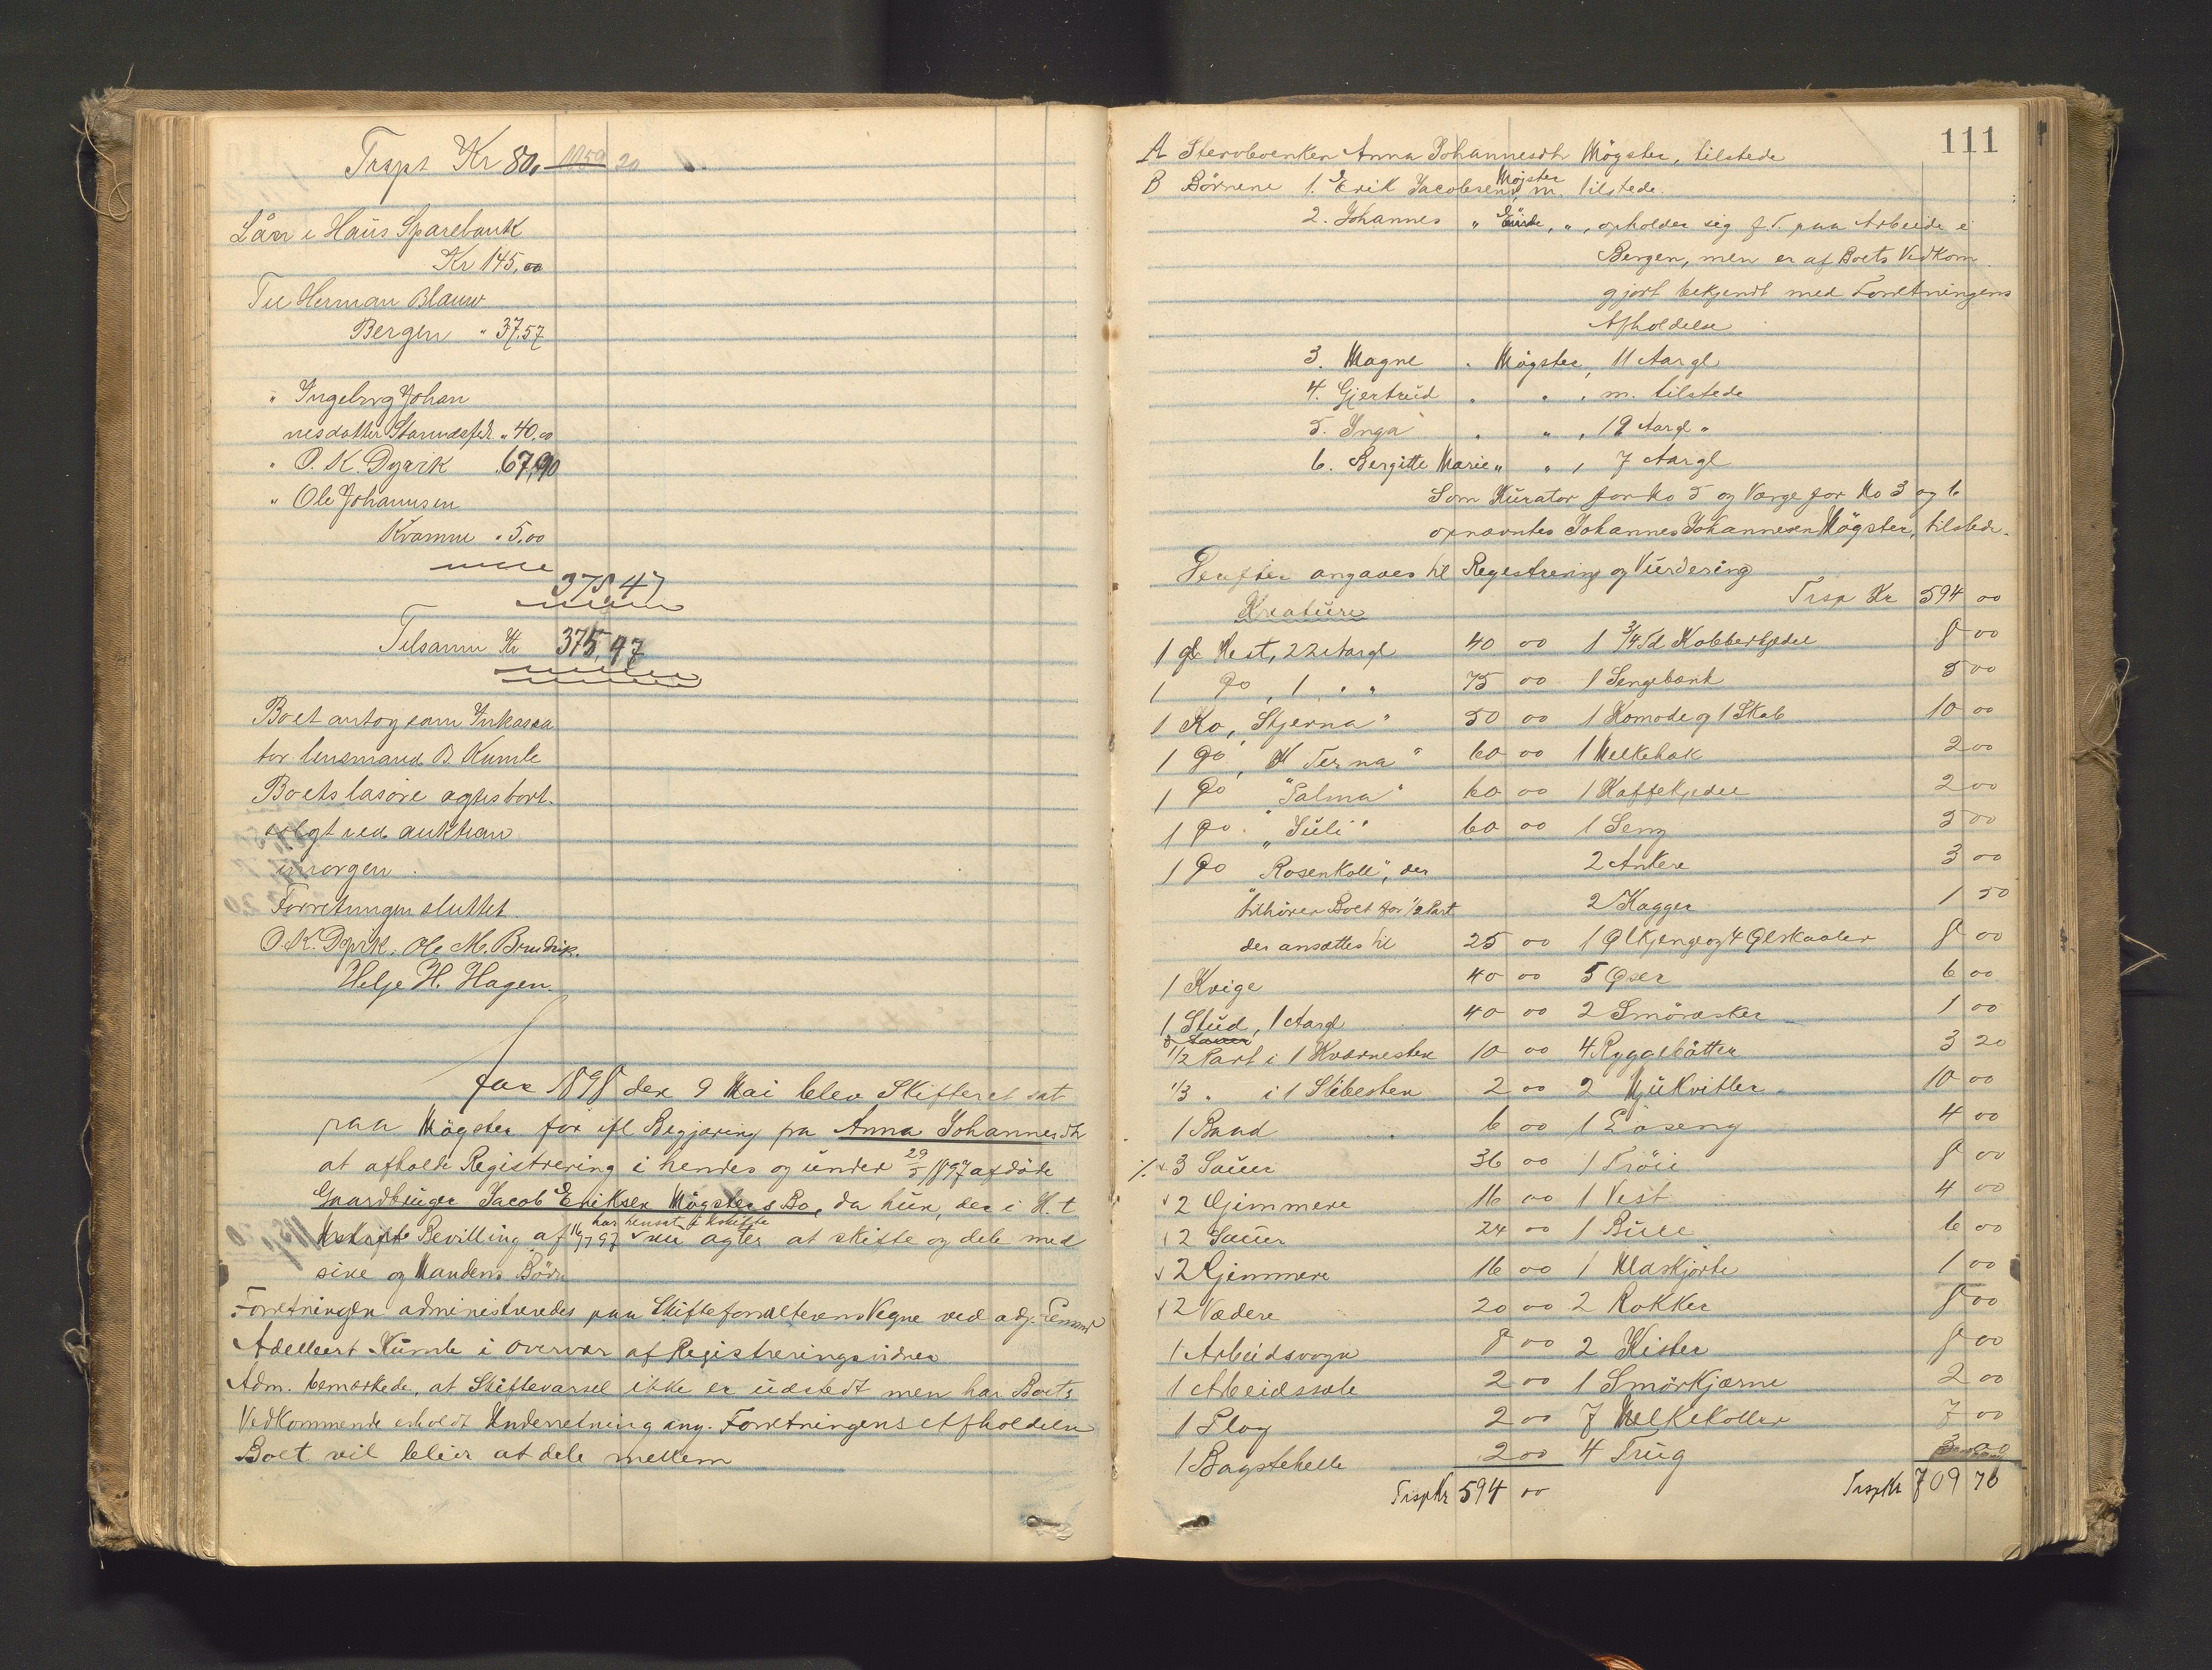 Trspt Kr 80, 1059 20
Lån i Haus Sparebank
Kr 145,00
Til Herman Blauw
Bergen " 37.57
" Ingeborg Johan
nesdatter " 40,00
" O. K. Dyvik 67,90
" Ole Johannesen
Kvamme " 5.00
375,47
Tilsamm Kr 375,47
Boet antog som Inkassa
tor lensmand B. Kumle
Boets løsøre agtes bort-
solgt ved auktion
imorgen.
Forretningen sluttet.
O. K. Dyvik. Ole M.
Helje H. Hagen.
Aar 1898 den 9 Mai blev Skifteret sat
paa Møgster for ifl Begjæring fra Anna Johannesdtr
at afholde Registrering i hendes og under 29/5 1897 afdøde
Gaardbruger Jacob Eriksen Møgsters Bo, da hun, der i H. t
har hensat i Uskifte
Uskifte Bevilling af 16/7 97 nu agter at skifte og dele med
sine og Mandens Børn
Forretningen administreredes paa Skifteforvalterens Vegne ved adj. Lensmd
Adelbert Kumle i Overvær af Registreringsvidner
Adm. bemærkede, at Skiftevarsel ikke er udstedt men har Boets
Vedkommende erholdt Underretning ang. Forretningens Afholdelse
Boet vil blive at dele mellem
111
A Stervboenken Anna Johannesdtr Møgster, tilstede
Møgster
B Børnene 1. Erik Jacobsen, m. tilstede.
2. Johannes " Eide, ", opholder sig f. T. paa Arbeide i
Bergen, men er af Boets Vedkom
gjort bekjendt med Forretningens
Afholdelse
3. Magne " Møgster, 11 Aar gl
4. Gjertrud " " , m. tilstede
5. Inga " " , 19 Aar gl "
6. Bergitte Marie " " , 7 Aar gl
Som Kurator for No 5 og Værge for No 3 og 6
opnævntes Johannes Johannesen Møgster, tilstede.
Derefter angaves til Registrering og Vurdering
Kreature Trsp Kr 594 00
1 gl Hest, 22 Aar gl 40 00 1 3/4 Td Kobberkjedel 8 00
1 Do , 1 " " 75 00 1 Sengebænk 5 00
1 Ko, "Stjerna" 50 00 1 Komode og 1 Skab 10 00
1 Do, "Terna" 60 00 1 Melkebak 2 00
1 Do "Palma" 60 00 1 Kaffekjedel 2 00
1 Do "Juli" 60 00 1 Seng 5 00
1 Do "Rosenkoll", der 2 Ankere 3 00
tilhører Boet for 1/2 Part 2 Kagger 1 50
der ansættes til 25 00 1 Ølkjenge og 4 Ølskaaler 8 00
1 Kvige 40 00 5 Øser 6 00
1 Stud, 1 Aar gl 40 00 2 Smøræsker 1 00
1/2 Part i 1 Kværnesten 10 00 4 Ryggebøtter 3 20
1/3 " i 1 Slibesten 2 00 2 Hjukvitler 10 00
1 Baad 6 00 1 4 00
3 Sauer 36 00 1 Trøie 8 00
2 Gimmere 16 00 1 Vest 4 00
2 Sauer 24 00 1 Buxe 6 00
2 Gimmere 16 00 1 Uldskjorte 1 00
2 Vædere 20 00 2 Rokker 8 00
1 Arbeidsvogn 8 00 2 Kister 8 00
1 Arbeidssele 2 00 1 Smørkjærne 2 00
1 Plog 2 00 7 Melkekoller 7 00
1 Bagstehelle 2 00 4 Trug
Trsp Kr 594 00 Trsp Kr 709 70